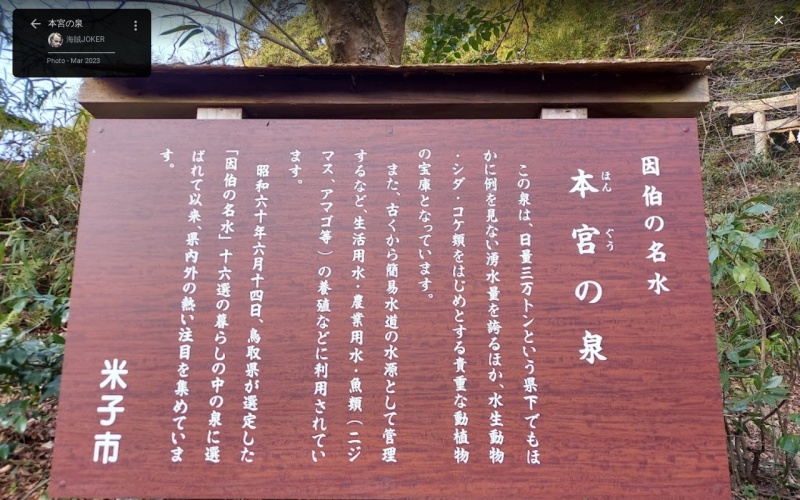 本宮の泉
海賊JOKER
Photo - Mar 2023
因伯の名水
ほん ぐう
本宮の泉
この泉は、日量三万トンという県下でもほ
かに例を見ない湧水量を誇るほか、水生動物
・シダ・コケ類をはじめとする貴重な動植物
の宝庫となっています。
また、古くから簡易水道の水源として管理
するなど、生活用水・農業用水・魚類（ニジ
マス、アマゴ等）の養殖などに利用されてい
ます。
昭和六十年六月十四日、鳥取県が選定した
「因伯の名水」十六選の暮らしの中の泉に選
ばれて以来、県内外の熱い注目を集めていま
す。
米子市